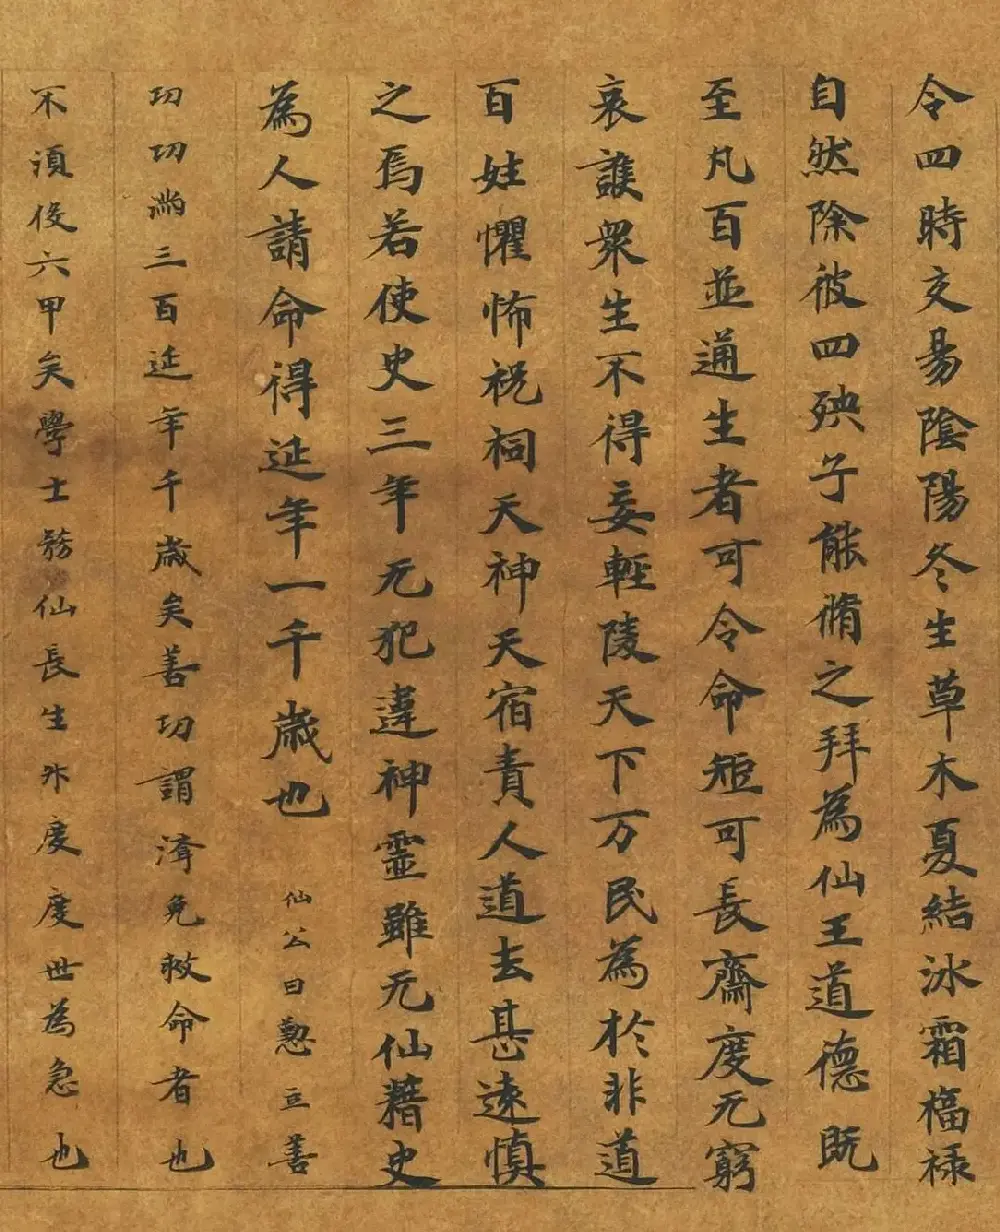 令四時交易陰陽冬生草木夏結冰霜福祿
自然除彼四殃子能脩之拜為仙王道德既
至凡百並通生者可令命短可長齋度无窮
哀護眾生不得妄輕陵天下万民為於非道
百姓懼怖祝祠天神天宿責人道去甚遠慎
之焉若使史三年无犯違神靈雖无仙籍史
為人請命得延年一千歲也 仙公曰懃立善
功功滿三百延年千歲矣善功謂濟免救命者也
不須後六甲矣學士務仙長生昇度度世為急也